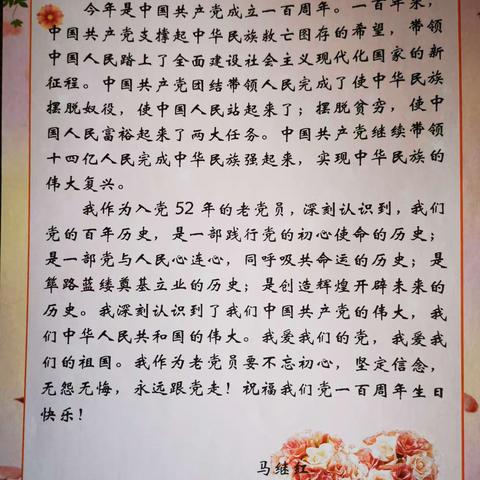 今年是中国共产党成立一百周年。一百年来，
中国共产党支撑起中华民族救亡图存的希望，带领
中国人民踏上了全面建设社会主义现代化国家的新
征程。中国共产党团结带领人民完成了使中华民族
摆脱奴役，使中国人民站起来了；摆脱贫穷，使中
国人民富裕起来了两大任务。中国共产党继续带领
十四亿人民完成中华民族强起来，实现中华民族的
伟大复兴。
我作为入党 52 年的老党员，深刻认识到，我们
党的百年历史，是一部践行党的初心使命的历史；
是一部党与人民心连心，同呼吸共命运的历史；是
筚路蓝缕奠基立业的历史；是创造辉煌开辟未来的
历史。我深刻认识到了我们中国共产党的伟大，我
们中华人民共和国的伟大。我爱我们的党，我爱我
们的祖国。我作为老党员要不忘初心，坚定信念，
无怨无悔，永远跟党走！祝福我们党一百周年生日
快乐！
马继红